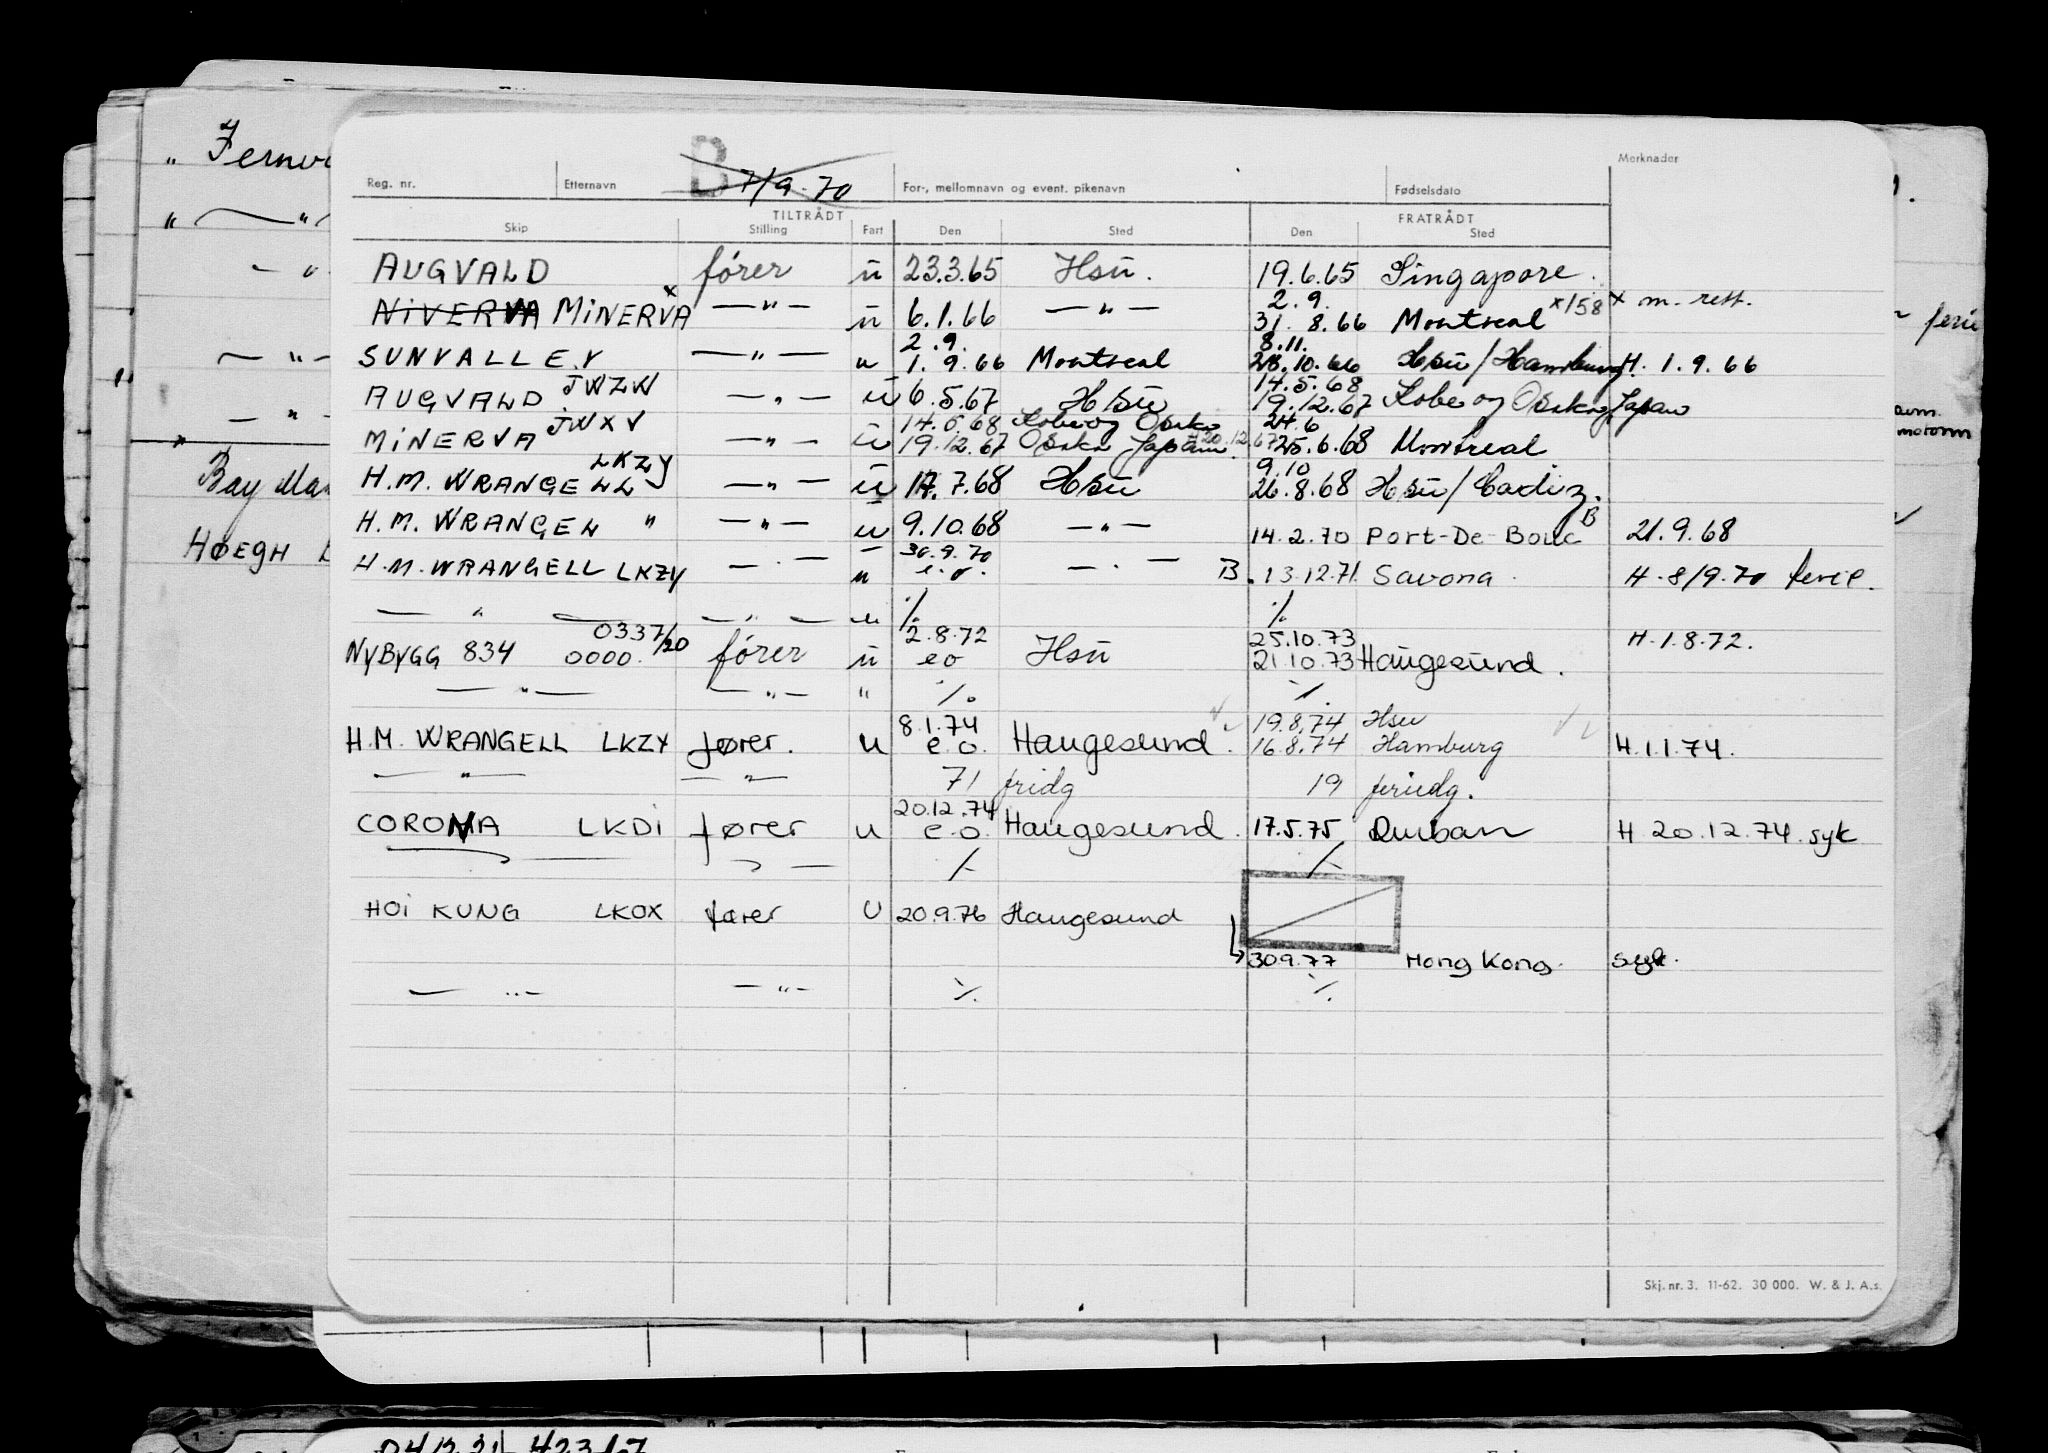 B 7/9-70
Merknader
Reg. nr. Etternavn For-, mellomnavn og event. pikenavn Fødselsdato
TILTRÅDT FRATRÅDT
Skip Stilling Fart Den Sted Den Sted
AUGVALD fører u 23.3.65 Hsu. 19.6.65 Singapore.
2.9.
NIVERVA MINERVA x —"— u 6.1.66 —"— 31.8.66 Montreal x/58 x m. rett.
2.9. 8.11.
SUNVALLEY —"— u 1.9.66 Montreal 28.10.66 Hsu/Hamburg H. 1.9.66
14.5.68
AUGVALD JWZW —"— u 6.5.67 Hsu 19.12.67 Kobe og Osaka Japan
14.5.68 Kobe og Osaka 24.6
MINERVA JWXV —"— u 19.12.67 Osaka Japan. 20.12.67 25.6.68 Montreal
9.10
H.M. WRANGELL LKZY —"— u 17.7.68 Hsu 26.8.68 Hsu/Cadiz.
H.M. WRANGEL " —"— u 9.10.68 —"— 14.2.70 Port-De-Bouc B 21.9.68
30.9.70
H.M. WRANGELL LKZY —"— u e.o. —"— B. 13.12.71. Savona. H. 8/9.70 ferie.
— " — —"— u ./. ./.
0337/20 2.8.72 25.10.73 H.1.8.72.
NYBYGG 834 0000. fører u eo Hsu 21.10.73 Haugesund.
—"— —"— " ./. ./.
8.1.74 19.8.74 Hsu
H.M. WRANGELL LKZY fører. u e.o. Haugesund. 16.8.74 Hamburg H.1.1.74.
—"— —"— 71 fridg 19 feriedg.
20.12.74
CORONA LKDI fører u e.o. Haugesund. 17.5.75 Durban H 20.12.74. syk
—"— ./. ./.
HOI KUNG LKOX fører U 20.9.76 Haugesund
30.9.77 Hong Kong. syk.
—"— —"— ./. ./.
Skj. nr. 3. 11-62. 30 000. W. & J. A.s.
"
—"—
—"—
—"—
Bay
HØEGH
ferie